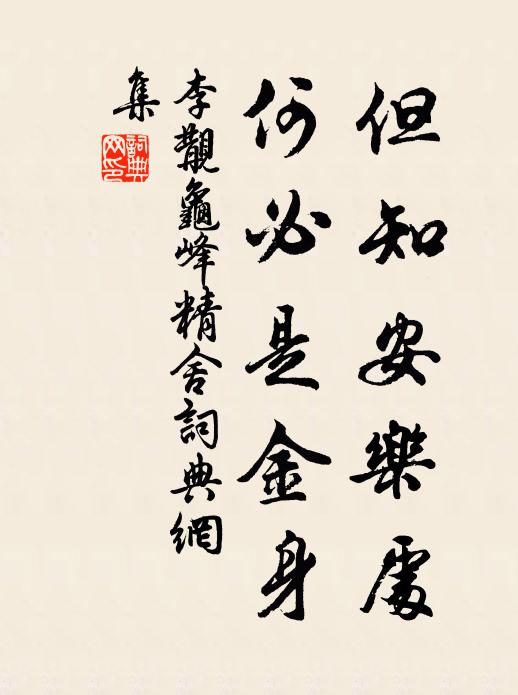 但知安樂處
何必是金身
李觀龜峰精舍詞典網
集
詞典
网印